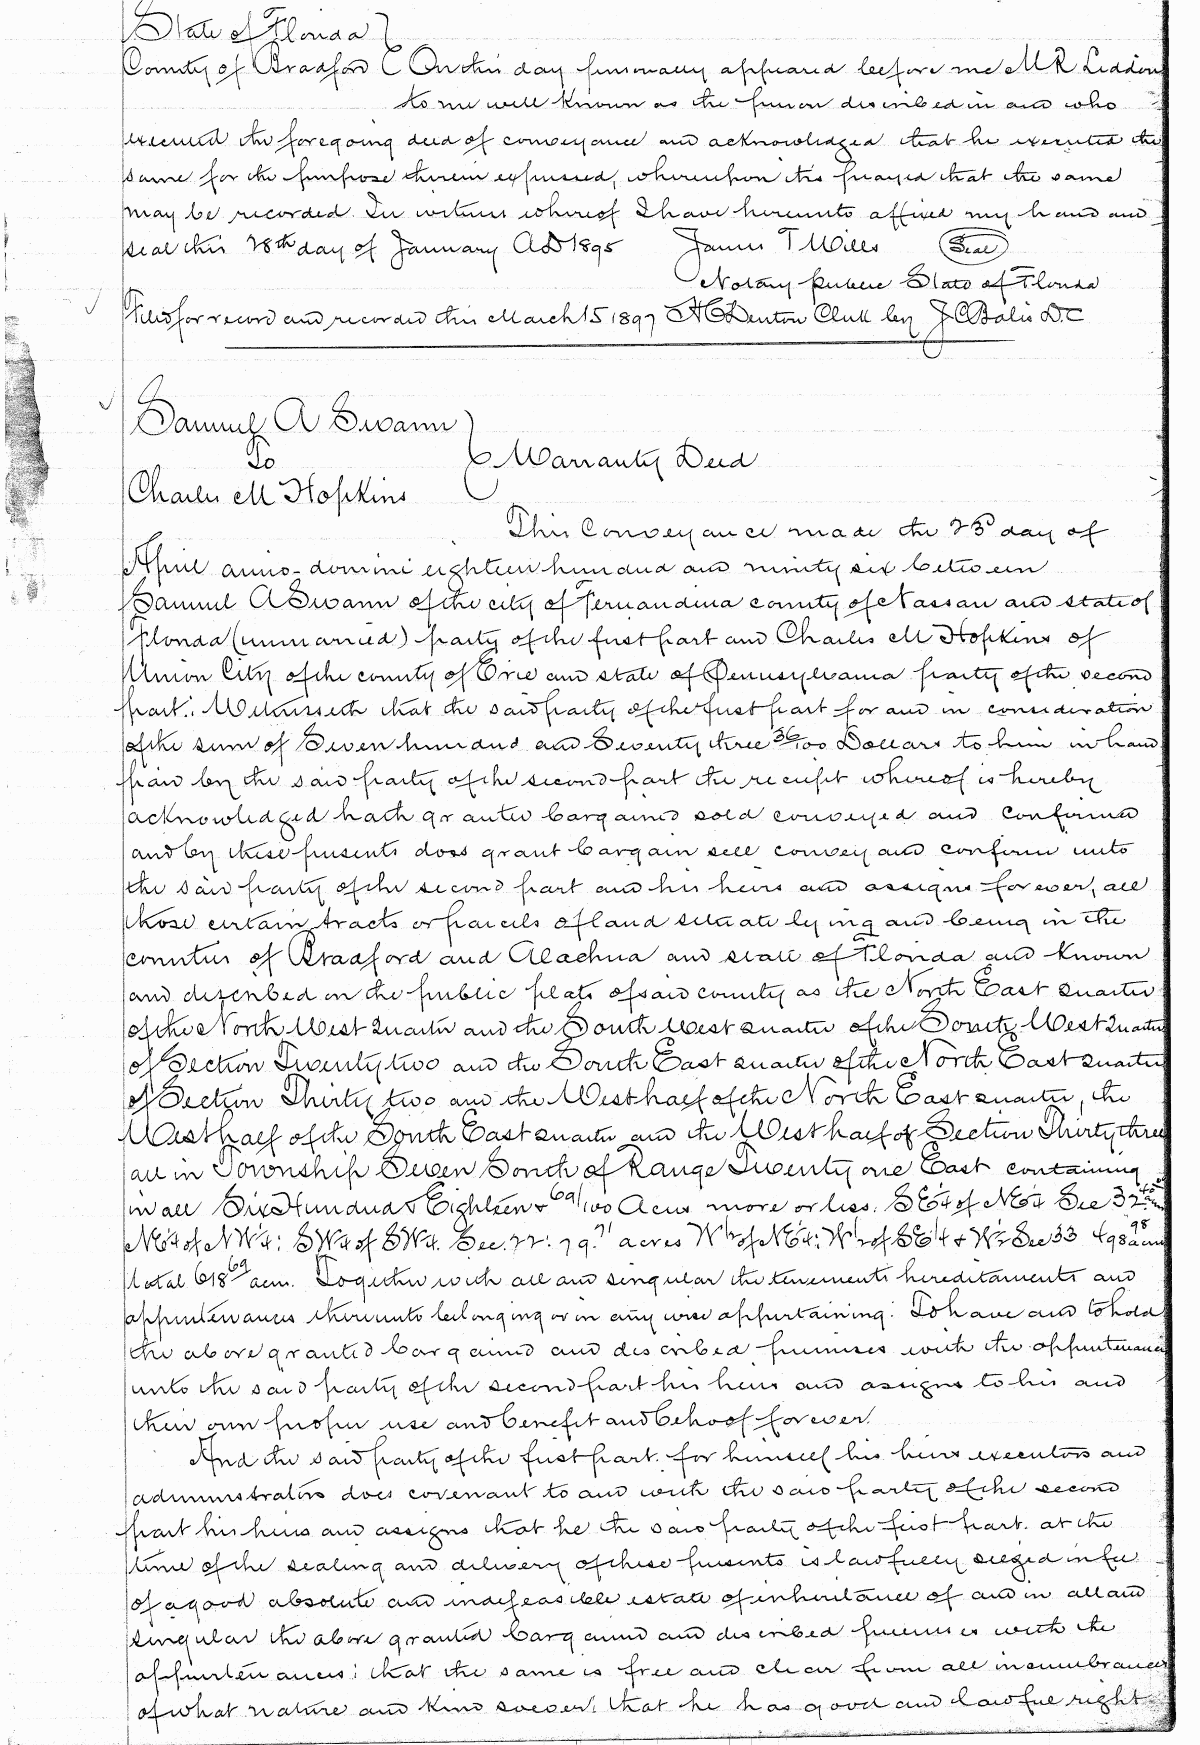 State of Florida
County of Bradford On this day personally appeared before me M R Leddon
to me well known as the person described in and who
executed the foregoing deed of conveyance and acknowledged that he executed the
same for the purpose therein expressed, whereupon it is prayed that the same
may be recorded. In witness whereof I have hereunto affixed my hand and
seal this 28th day of January AD 1895 James T Wills Seal
Notary public State of Florida
Filed for record and recorded this March 15 1897 H C Denton Clerk by J C D.C
Samuel A Swann
To
Warranty Deed
Charles M Hopkins
This Conveyance made the 23d day of
April anno-domini eighteen hundred and ninety six between
Samuel A Swann of the city of Fernandina county of Nassau and state of
Florida (unmarried) party of the first part and Charles M Hopkins of
Union City of the county of Erie and state of Pennsylvania party of the second
part: Witnesseth that the said party of the first part for and in consideration
of the sum of Seven hundred and Seventy three 36/100 Dollars to him in hand
paid by the said party of the second part the receipt whereof is hereby
acknowledged hath granted bargained sold conveyed and confirmed
and by these presents does grant bargain sell convey and confirm unto
the said party of the second part and his heirs and assigns forever, all
those certain tracts or parcels of land situate lying and being in the
counties of Bradford and Alachua and state of Florida and known
and described on the public plats of said county as the North East quarter
of the North West quarter and the South West quarter of the South West quarter
of Section Twenty two and the South East quarter of the North East quarter
of Section Thirty two and the West half of the North East quarter, the
West half of the South East quarter and the West half of Section Thirty three
all in Township Seven South of Range Twenty one East containing
in all Six Hundred & Eighteen & 69/100 Acres more or less. SE¼ of NE¼ Sec 32
NE¼ of NW¼: SW¼ of SW¼. Sec. 22: 79.71 acres W½ of NE¼: W½ of SE¼ & W½ Sec 33 498 98 acres
total 618 69 acres. Together with all and singular the tenements hereditaments and
appurtenances thereunto belonging or in any wise appertaining: To have and to hold
the above granted bargained and described premises with the appurtenances
unto the said party of the second part his heirs and assigns to his and
their own proper use and benefit and behoof forever.
And the said party of the first part. for himself his heirs executors and
administrators does covenant to and with the said party of the second
part his heirs and assigns that he the said party of the first part. at the
time of the sealing and delivery of these presents is lawfully siezed in fee
of a good absolute and indefeasible estate of inheritance of and in all and
singular the above granted bargained and described premises with the
appurtenances: that the same is free and clear from all incumbrances
of what nature and kind soever: that he has good and lawful right